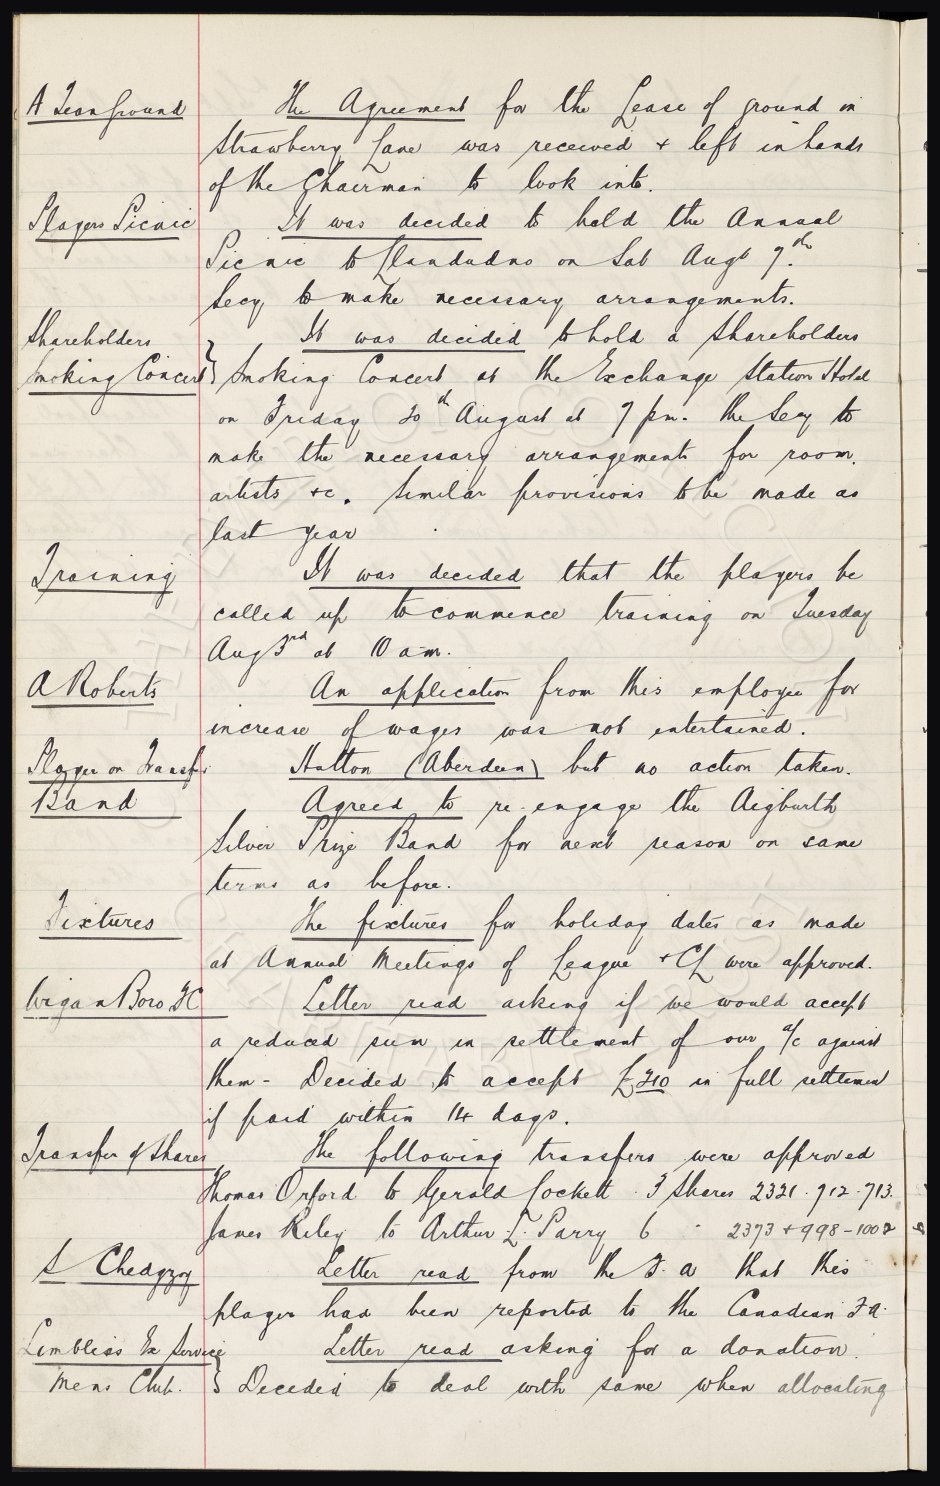 A Team Ground
The Agreement for the Lease of ground in
Strawberry Lane was received + left in hands
of the Chairman to look into.
Players Picnic
It was decided to hold the Annual
Picnic to Llandudno on Sat Augt 7th.
Secy to make necessary arrangements.
Shareholders
Smoking Concert }
It was decided to hold a Shareholders
Smoking Concert at the Exchange Station Hotel
on Friday 20th August at 7 pm. The Secy to
make the necessary arrangements for room,
artists +c. Similar provisions to be made as
last year
Training
It was decided that the players be
called up to commence training on Tuesday
Aug 3rd at 10 a.m.
A Roberts
An application from this employee for
increase of wages was not entertained.
Player on Transfer
Hutton (Aberdeen) but no action taken.
Band
Agreed to re-engage the Aigburth
Silver Prize Band for next season on same
terms as before.
Fixtures
The fixtures for holiday dates as made
at Annual Meetings of League + CL were approved.
Wigan Boro FC
Letter read asking if we would accept
a reduced sum in settlement of our a/c against
them - Decided to accept £210 in full settlement
if paid within 14 days.
Transfer of Shares
The following transfers were approved
Thomas Orford to Gerald Lockett 3 Shares 2321. 712. 713.
James Riley to Arthur L. Parry 6 " 2373 + 998-1002
S Chedgzoy
Letter read from the F.A that this
player had been reported to the Canadian F.A.
Limbless Ex Service
Mens Club. }
Letter read asking for a donation.
Decided to deal with same when allocating